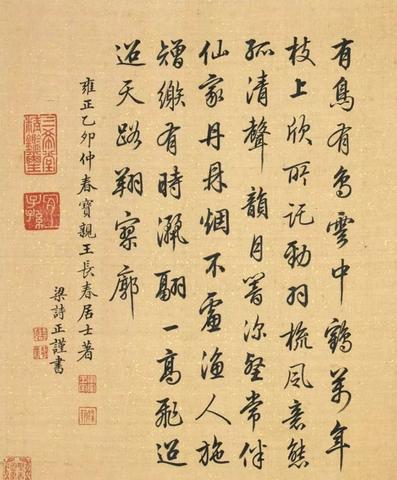 有鳥有鳥雲中鶴萬年
枝上欣所託勁羽梳風意態
孤清聲韻月深壑常伴
仙家丹鼎烟不慮漁人施
矰繳有時灑翮一高飛迢
迢天路翔寥廓
雍正乙卯仲春寶親王長春居士著
梁詩正謹書
三希堂精鑑璽
宜子孫